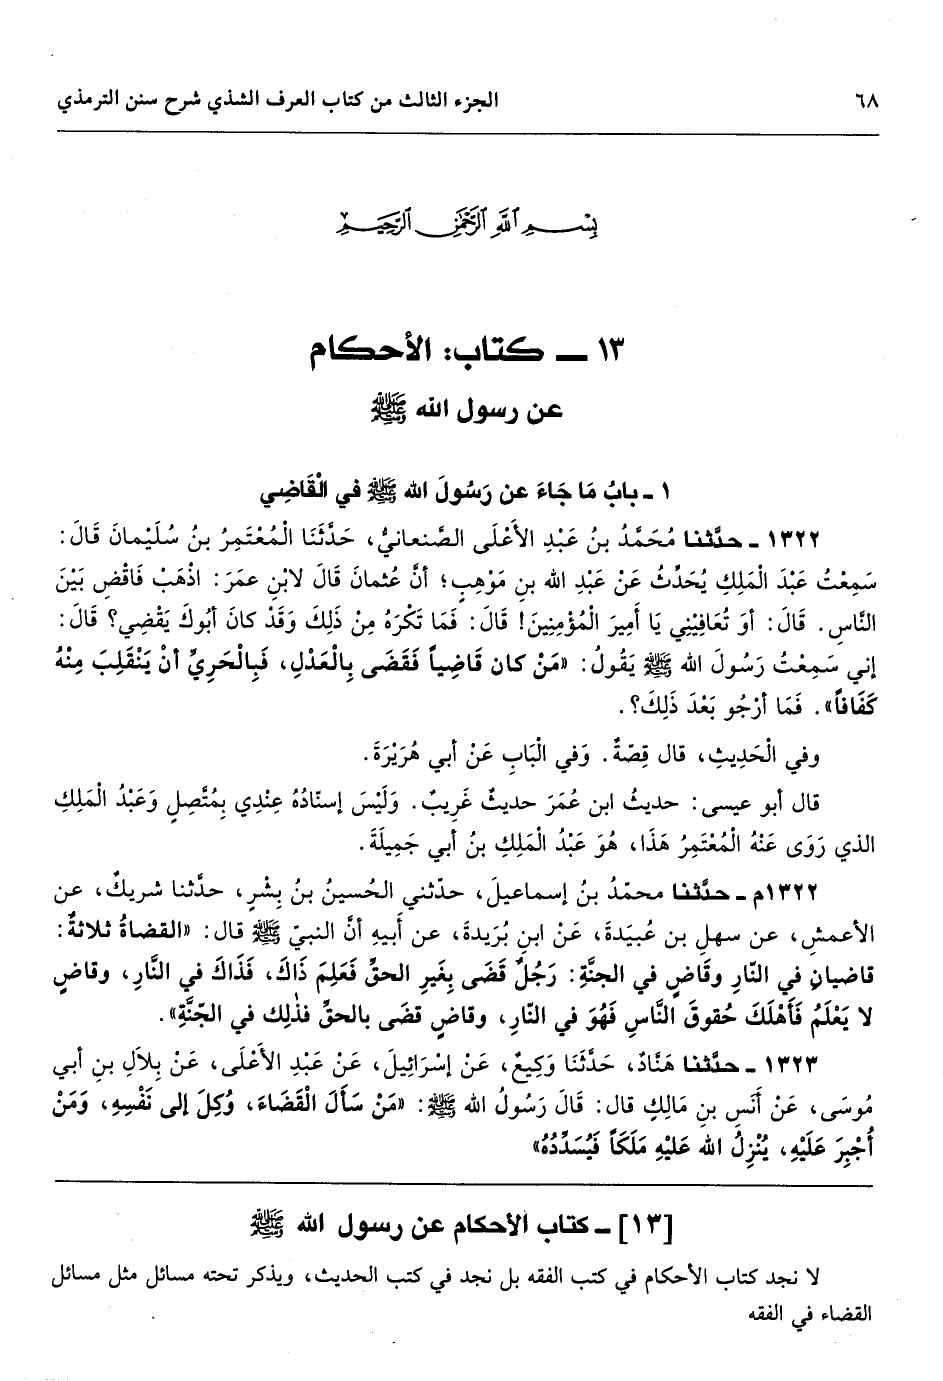 ٦٨ الجزء الثالث من كتاب العرف الشذي شرح سنن الترمذي
بِسْمِ اللَّهِ الرَّحْمَٰنِ الرَّحِيمِ
١٣ ــ كتاب: الأحكام
عن رسول الله ﷺ
١ ـ بابُ مَا جَاءَ عن رَسُولَ الله ﷺ في الْقَاضِي
١٣٢٢ ـ حدَّثنا مُحَمَّدُ بنُ عَبْدِ الأَعْلَى الصَّنعانيُّ، حَدَّثَنَا الْمُعْتَمِرُ بنُ سُلَيْمانَ قَالَ:
سَمِعْتُ عَبْدَ الْمَلِكِ يُحَدِّثُ عَنْ عَبْدِ الله بنِ مَوْهِبٍ؛ أنَّ عُثمانَ قَالَ لابْنِ عمَرَ: اذْهَبْ فَاقْضِ بَيْنَ
النَّاسِ. قَالَ: أوَ تُعَافِيْنِي يَا أمِيرَ الْمُؤْمِنِينَ! قَالَ: فَمَا تَكْرَهُ مِنْ ذَلِكَ وَقَدْ كانَ أبُوكَ يَقْضِي؟ قَالَ:
إني سَمِعْتُ رَسُولَ الله ﷺ يَقُولُ: «مَنْ كان قَاضِياً فَقَضَى بِالْعَدْلِ، فَبِالْحَرِيِّ أنْ يَنْقَلِبَ مِنْهُ
كَفَافاً». فَمَا أرْجُو بَعْدَ ذَلِكَ؟.
وفي الْحَدِيثِ، قال قِصّةٌ. وَفي الْبَابِ عَنْ أبي هُرَيْرَةَ.
قال أبو عيسى: حديثُ ابن عُمَرَ حديثٌ غَرِيبٌ. وَلَيْسَ إسنَادُهُ عِنْدِي بِمُتَّصِلٍ وَعَبْدُ الْمَلِكِ
الذي رَوَى عَنْهُ الْمُعْتَمِرُ هَذَا، هُوَ عَبْدُ الْمَلِكِ بنُ أبي جَمِيلَةَ.
١٣٢٢م ـ حدَّثنا محمّدُ بنُ إسماعيلَ، حدّثني الحُسينُ بنُ بِشْرٍ، حدّثنا شريكٌ، عن
الأعمشِ، عن سهلِ بن عُبيَدةَ، عَنْ ابنِ بُرَيدةَ، عن أَبيهِ أنَّ النبيّ ﷺ قال: «القضاةُ ثلاثةٌ:
قاضيانِ في النّارِ وقَاضٍ في الجنَّةِ: رَجُلٌ قَضَى بِغَيرِ الحقِّ فَعَلِمَ ذَاكَ، فَذَاكَ في النَّارِ، وقاضٍ
لا يَعْلَمُ فَأَهْلَكَ حُقوقَ النَّاسِ فَهُوَ في النّارِ، وقاضٍ قضَى بالحقِّ فذٰلِك في الجّنَّةِ».
١٣٢٣ ـ حدَّثنا هَنَّادٌ، حَدَّثَنَا وَكِيعٌ، عَنْ إسْرَائِيلَ، عَنْ عَبْدِ الأَعْلَى، عَنْ بِلاَلِ بنِ أبي
مُوسَى، عَنْ أَنَسِ بنِ مَالِكٍ قال: قَالَ رَسُولُ الله ﷺ: «مَنْ سَأَلَ الْقَضَاءَ، وُكِلَ إلى نَفْسِهِ، وَمَنْ
أُجْبِرَ عَلَيْهِ، يُنْزِلُ الله عَلَيْهِ مَلَكَاً فَيُسَدِّدُهُ»
[١٣] ـ كتاب الأحكام عن رسول الله ﷺ
لا نجد كتاب الأحكام في كتب الفقه بل نجد في كتب الحديث، ويذكر تحته مسائل مثل مسائل
القضاء في الفقه